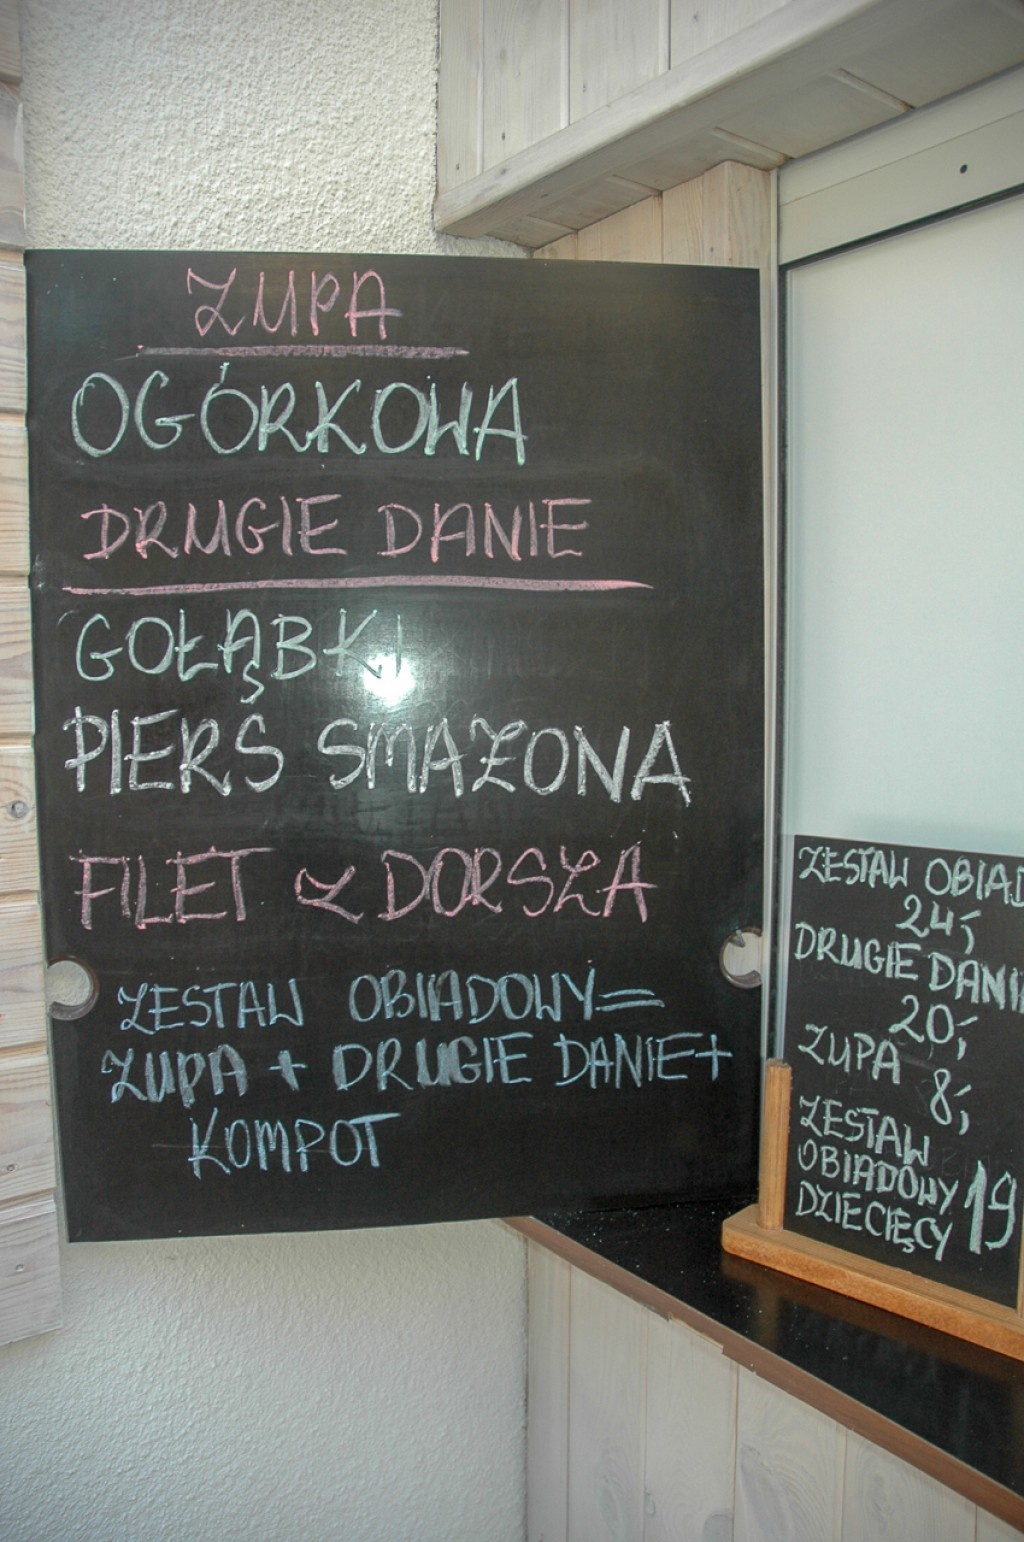 ZUPA
OGÓRKOWA
DRUGIE DANIE
GOŁĄBKI
PIERŚ SMAZONA
FILET Z DORSZA
ZESTAW OBIADOWY=
ZUPA + DRUGIE DANIE+
KOMPOT
ZESTAW OBIAD
24,-
DRUGIE DANIE
20,-
ZUPA
8,-
ZESTAW
OBIADOWY 19
DZIECIĘCY